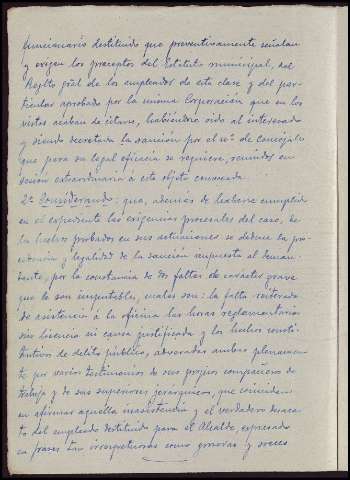 funcionario destituido que preventivamente señalan
y exigen los preceptos del Estatuto municipal, del
Reglto gral de los empleados de esta clase y del par-
ticular aprobado por la misma Corporación que en los
vistos acaban de citarse, habiéndose oido al interesado
y siendo decretada la sanción por el nº de Concejales
que para su legal eficacia se requiere, reunidos en
sesión extraordinaria á este objeto convocada.
2º Considerando: que, además de haberse cumplido
en el expediente las exigencias procesales del caso, de
los hechos probados en sus actuaciones se deduce la pro-
cedencia y legalidad de la sanción impuesta al deman-
dante, por la constancia de dos faltas de carácter grave
que le son imputables, cuales son: la falta reiterada
de asistencia á la oficina las horas reglamentarias
sin licencia ni causa justificada y los hechos consti-
tutivos de delito público, adveradas ambas plenamen-
te por varios testimonios de sus propios compañeros de
trabajo y de sus superiores jerárquicos, que coinciden
en afirmar aquella inasistencia y el verdadero desaca-
to del empleado destituido para el Alcalde, expresado
en frases tan irrespetuosas como groseras y soeces